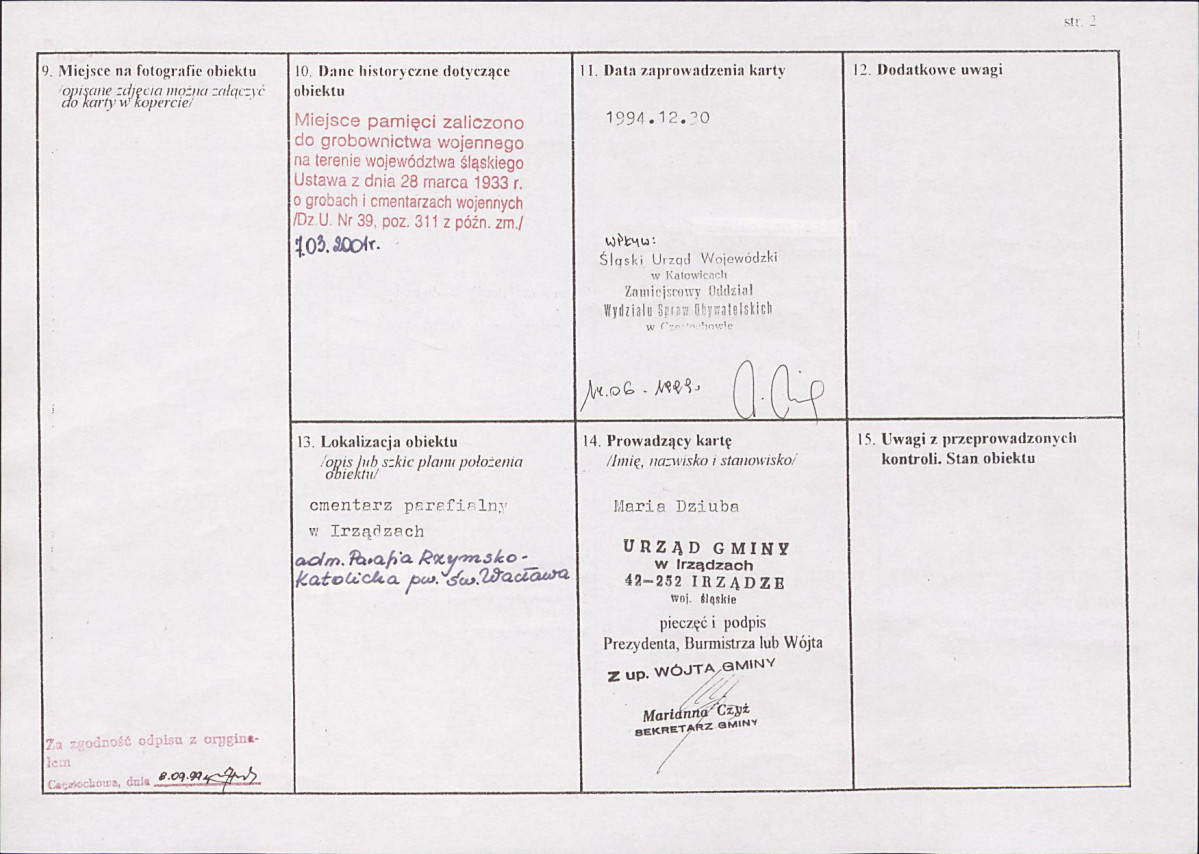 str. 2
9. Miejsce na fotografie obiektu
/opisane zdjęcia można załączyć
do karty w kopercie/
Za zgodność odpisu z orygina-
łem
Częstochowa, dnia 8.09.99
10. Dane historyczne dotyczące
obiektu
Miejsce pamięci zaliczono
do grobownictwa wojennego
na terenie województwa śląskiego
Ustawa z dnia 28 marca 1933 r.
o grobach i cmentarzach wojennych
/Dz.U. Nr 39, poz. 311 z późn. zm./
7.03.2001r.
11. Data zaprowadzenia karty
1994.12.30
wpływ:
Śląski Urząd Wojewódzki
w Katowicach
Zamiejscowy Oddział
Wydziału Spraw Obywatelskich
w Częstochowie
14.06.1999.
12. Dodatkowe uwagi
13. Lokalizacja obiektu
/opis lub szkic planu położenia
obiektu/
cmentarz parafialny
w Irządzach
adm. Parafia Rzymsko-
Katolicka pw. św. Wacława
14. Prowadzący kartę
/Imię, nazwisko i stanowisko/
Maria Dziuba
URZĄD GMINY
w Irządzach
42-252 IRZĄDZE
woj. śląskie
pieczęć i podpis
Prezydenta, Burmistrza lub Wójta
Z up. WÓJTA GMINY
Marianna Czyż
SEKRETARZ GMINY
15. Uwagi z przeprowadzonych
kontroli. Stan obiektu